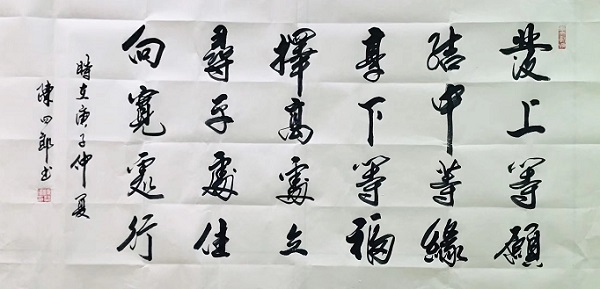 發上等願
結中等緣
享下等福
擇高處立
尋平處住
向寬處行
時在庚子仲夏
陳四郎书